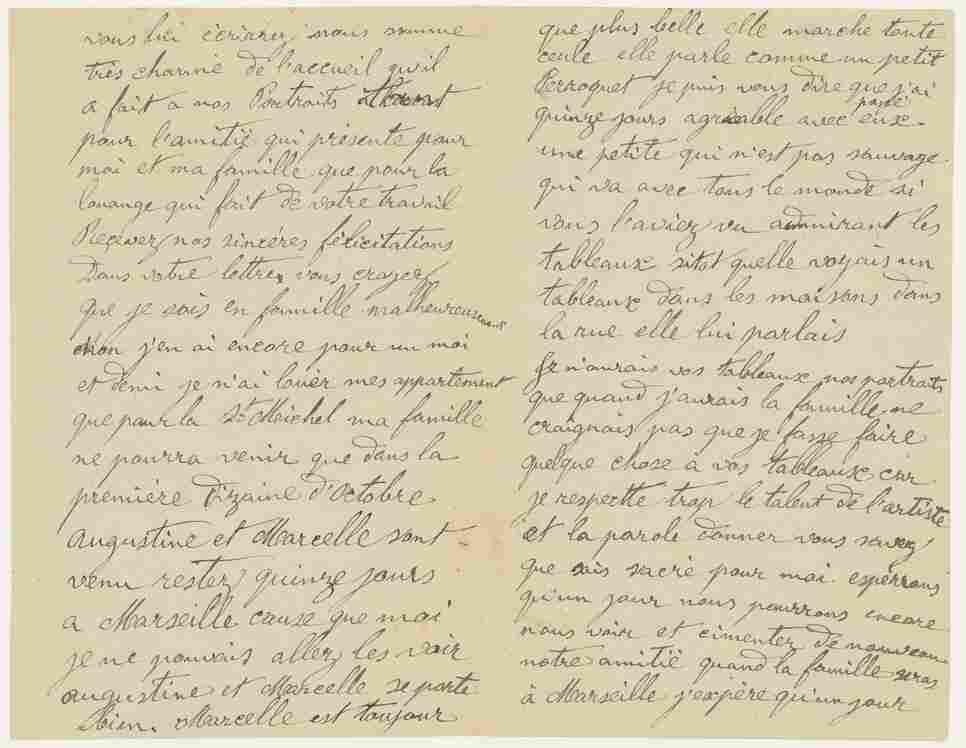 vous lui écriarez, nous somme
très charmé de l'accueil qu'il
a fait a nos Portraits
pour l'amitié qui présente pour
moi et ma famille que pour la
louange qui fait de votre travail
Recevez nos sincéres félicitations
Dans votre lettre, vous croyez
que je sois en famille malheureusement
non j'en ai encore pour un moi
et demi je n'ai louer mes appartement
que pour la St Meichel ma famille
ne pourra venir que dans la
première dizaine d'Octobre.
Augustine et Marcelle sont
venu rester quinze jours
a Marseille cause que moi
je ne pouvais allez les voir
Augustine et Marcelle se porte
bien. Marcelle est toujour
que plus belle elle marche toute
ceule elle parle comme un petit
Perroquet je puis vous dire que j'ai
quinze jours agréable avec passé eux.
une petite qui n'est pas sauvage.
qui va avec tous le monde si
vous l'aviez vu admirant les
tableaux sitot quelle voyais un
tableaux dans les maisons dans
la rue elle lui parlais
Je n'aurais vos tableaux nos portraits
que quand j'aurais la famille ne
craignais pas que je fasse faire
quelque chose à vos tableaux car
je respectte trop le talent de l'artiste
et la parole donner vous savez
que sais sacré pour moi. espérrons
qu'un jour nous pourrons encore
nous voir et cimenter de nouveau
notre amitié quand la famille seras
à Marseille j'expère qu'un jour